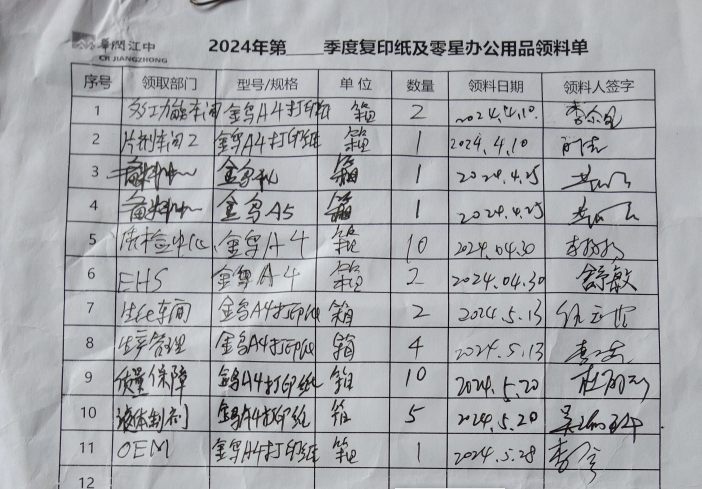 華潤江中
CR JIANGZHONG
2024年第____季度复印纸及零星办公用品领料单
序号 领取部门 型号/规格 单 位 数量 领料日期 领料人签字
1 多功能车间 金鸟A4打印纸 箱 2 2024.4.10.
2 片剂车间2 金鸟A4打印纸 箱 1 2024.4.10
3 备料中心 金鸟 箱 1 2024.4.25
4 备料中心 金鸟A5 箱 1 2024.4.25
5 质检中心 金鸟A4 箱 10 2024.04.30
6 EHS 金鸟A4 箱 2 2024.04.30 舒敏
7 车间 金鸟A4打印纸 箱 2 2024.5.13
8 生产管理 金鸟A4打印纸 箱 4 2024.5.13
9 质量保障 金鸟A4打印纸 箱 10 2024.5.20
10 液体制剂 金鸟A4打印纸 箱 5 2024.5.20
11 OEM 金鸟A4打印纸 箱 1 2024.5.28
12